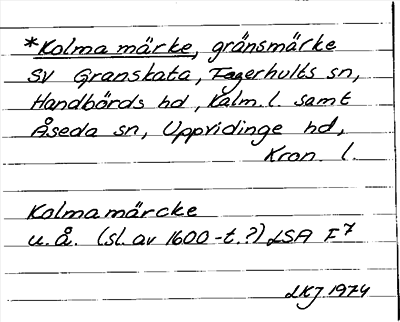 *Kolma märke, gränsmärke
SV Granskata, Fagerhults sn,
Handbörds hd, Kalm. l. samt
Åseda sn, Uppvidinge hd,
Kron. l.
Kolmamärcke
u.å. (sl. av 1600-t.?) LSA F7
LKJ 1974